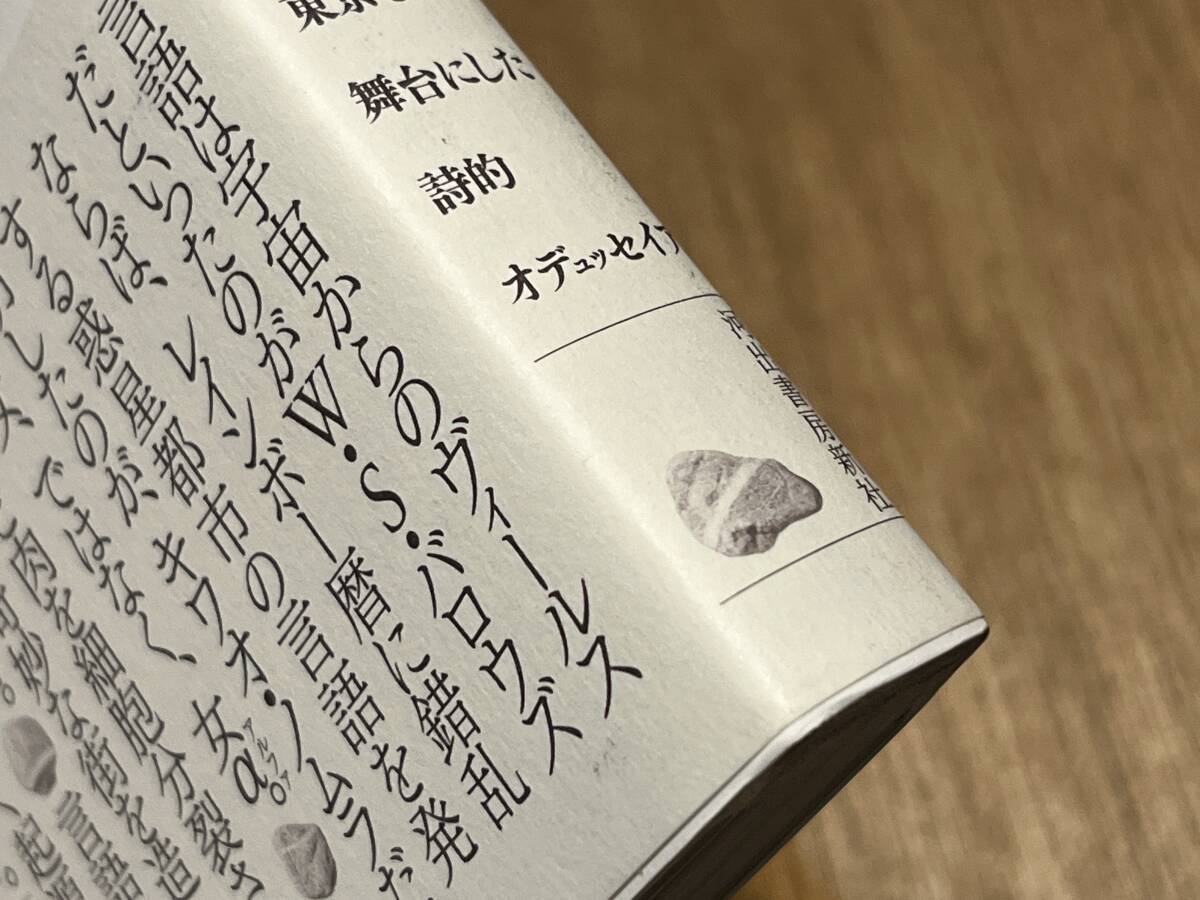 東京
舞台にした
詩的
オデュッセイア
河出書房新社
言語は宇宙からのヴィールス
だと、いったのがW・S・バロウズ
ならば、レインボー暦に錯乱
する惑星都市の言語を発
したのが、キワオ・ノムラだ
ではなく、女α。
アルファ
肉を細胞分裂さ
妙な街を造
言語
起源